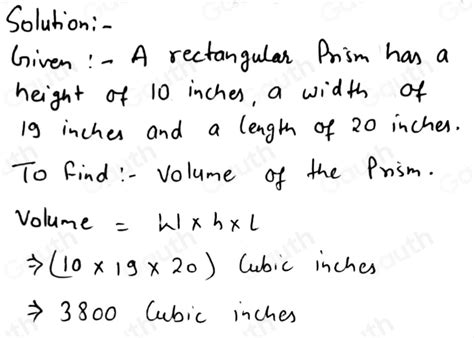 Solution:-
Given :- A rectangular Prism has a
height of 10 inches, a width of
19 inches and a length of 20 inches.
To find :- Volume of the Prism.
Volume = W x h x L
⇒ (10 x 19 x 20) Cubic inches
⇒ 3800 Cubic inches